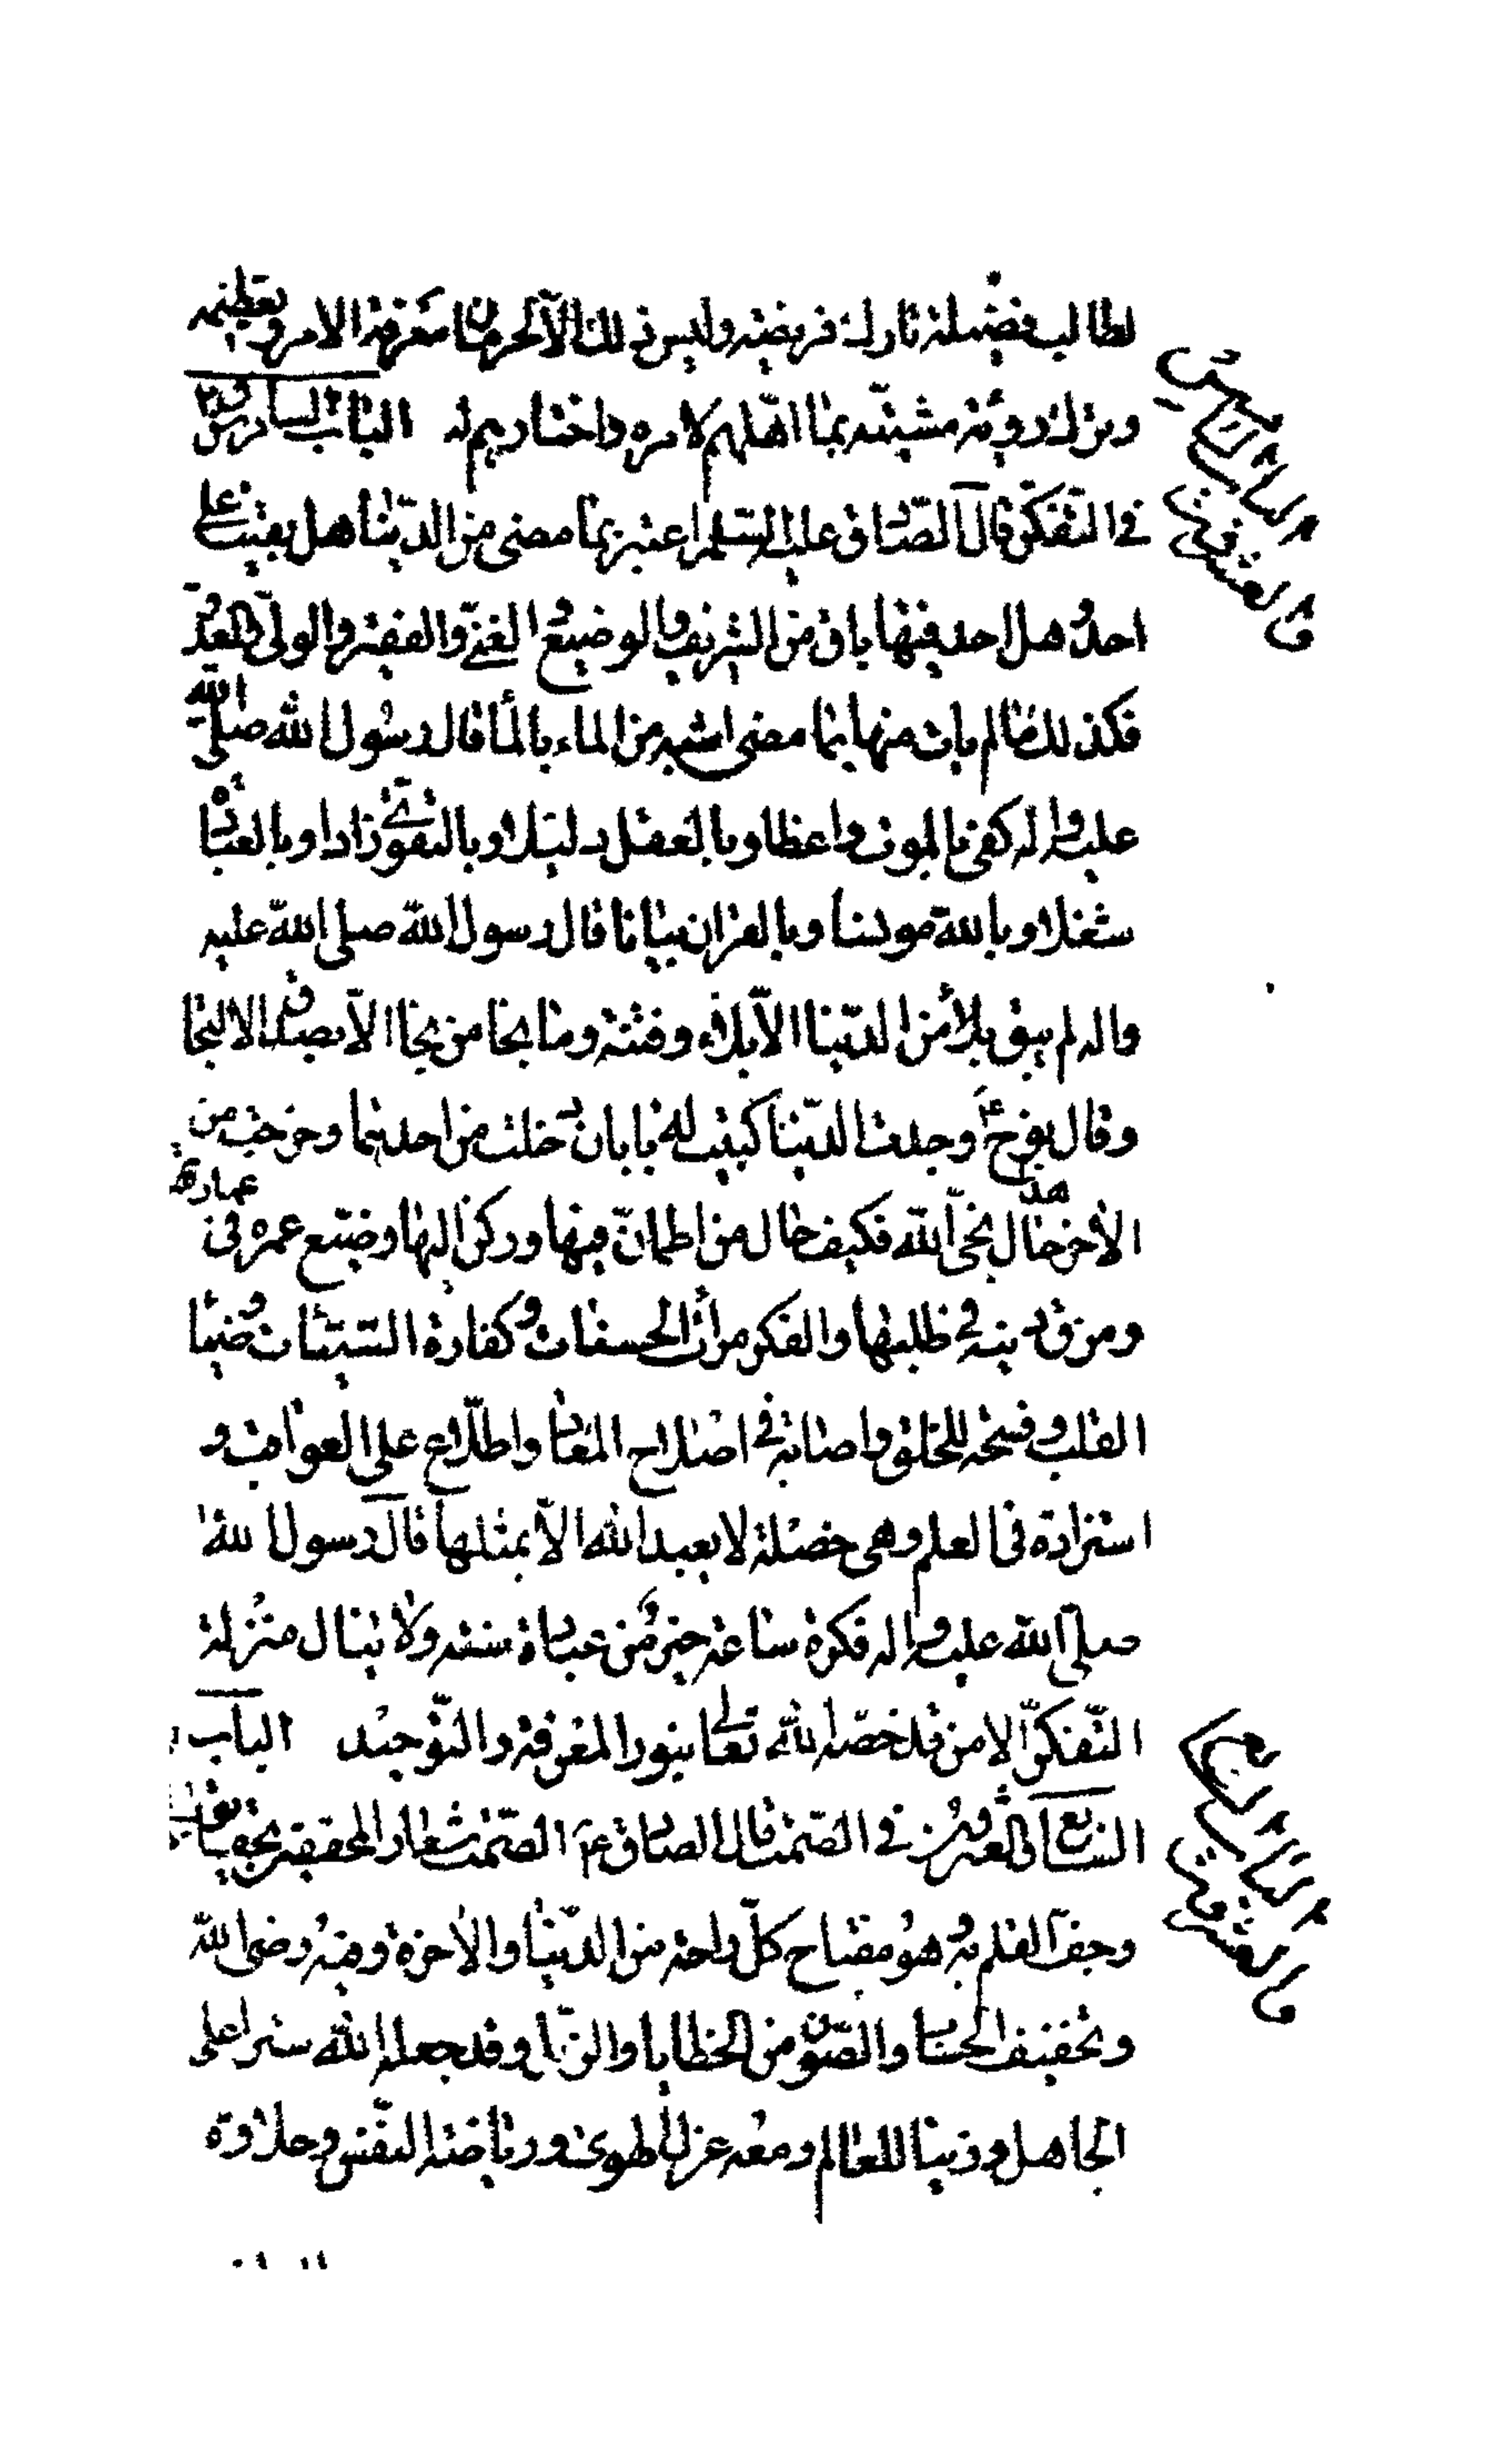 لطالب فضيلة تارك فريضة وليس ذلك الا لحرمان معرفة الامر وتعظيمه
وترك روية مشيته بما اهلهم لامره واختارهم له الباب السادس والعشرون
في التفكر قال الصادق عليه السلم اعتبر بما مضى من الدنيا هل بقيت على
احد وهل احد فيها باق من الشريف والوضيع الغني والفقير والولي والعدو
فكذلك ما لم يات منها بما مضى اشبه من الماء بالماء قال رسول الله صلى الله
عليه واله كفى بالموت واعظا وبالعقل دليلا وبالتقوى زادا وبالعبادة
شغلا وبالله مونسا وبالقران بيانا قال رسول الله صلى الله عليه
واله لم يبق من الدنيا الا بلاء وفتنة وما نجا من نجا الا بصدق الالتجا
وقال نوح ع وجدت الدنيا كبيت له بابان دخلت من احدهما وخرجت من
الاخر هذا حال نجي الله فكيف حال من اطمان فيها وركن اليها وضيع عمره في عمارتها
ومزق دينه في طلبها والفكر مرات الحسنات وكفارة السيئات وضياء
القلب وفسحة للخلق واصابة في اصلاح المعاد واطلاع على العواقب و
استزادة في العلم وهي خصلة لا يعبد الله الا بمثلها قال رسول الله
صلى الله عليه واله فكرة ساعة خير من عبادة سنة ولا ينال منزلة
التفكر الا من قد خصه الله تعالى بنور المعرفة والتوحيد الباب
السابع والعشرون في الصمت قال الصادق ع الصمت شعار المحققين بحقايق
وجف القلم به وهو مفتاح كل راحة من الدنيا والاخرة وفيه رضى الله
وتخفيف الحساب والصون من الخطايا والزلل وقد جعله الله سترا على
الجاهل وزينا للعالم ومعه عزل الهوى ورياضة النفس وحلاوة
الباب السادس
والعشرون
الباب السابع
والعشرون